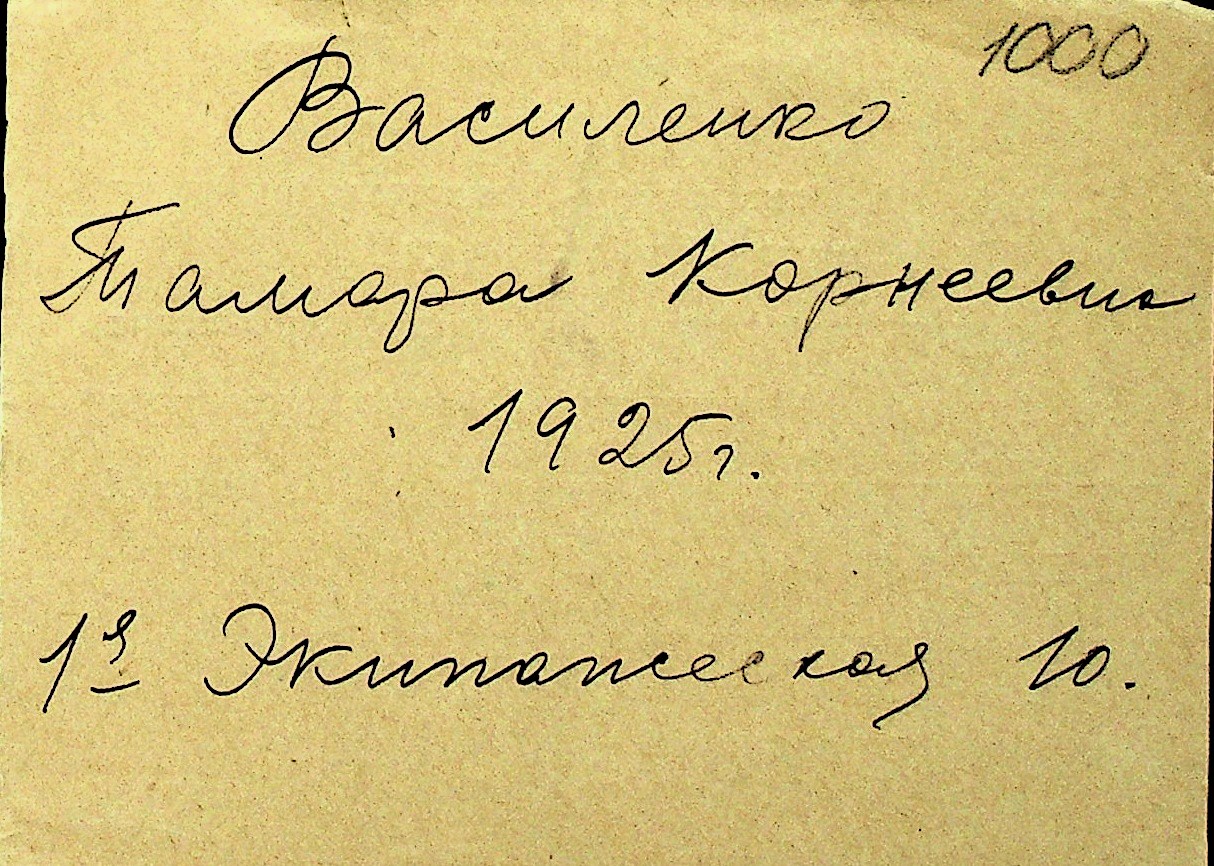 1000
Василенко
Тамара Корнеевна
1925г.
1я Экипажеская 10.